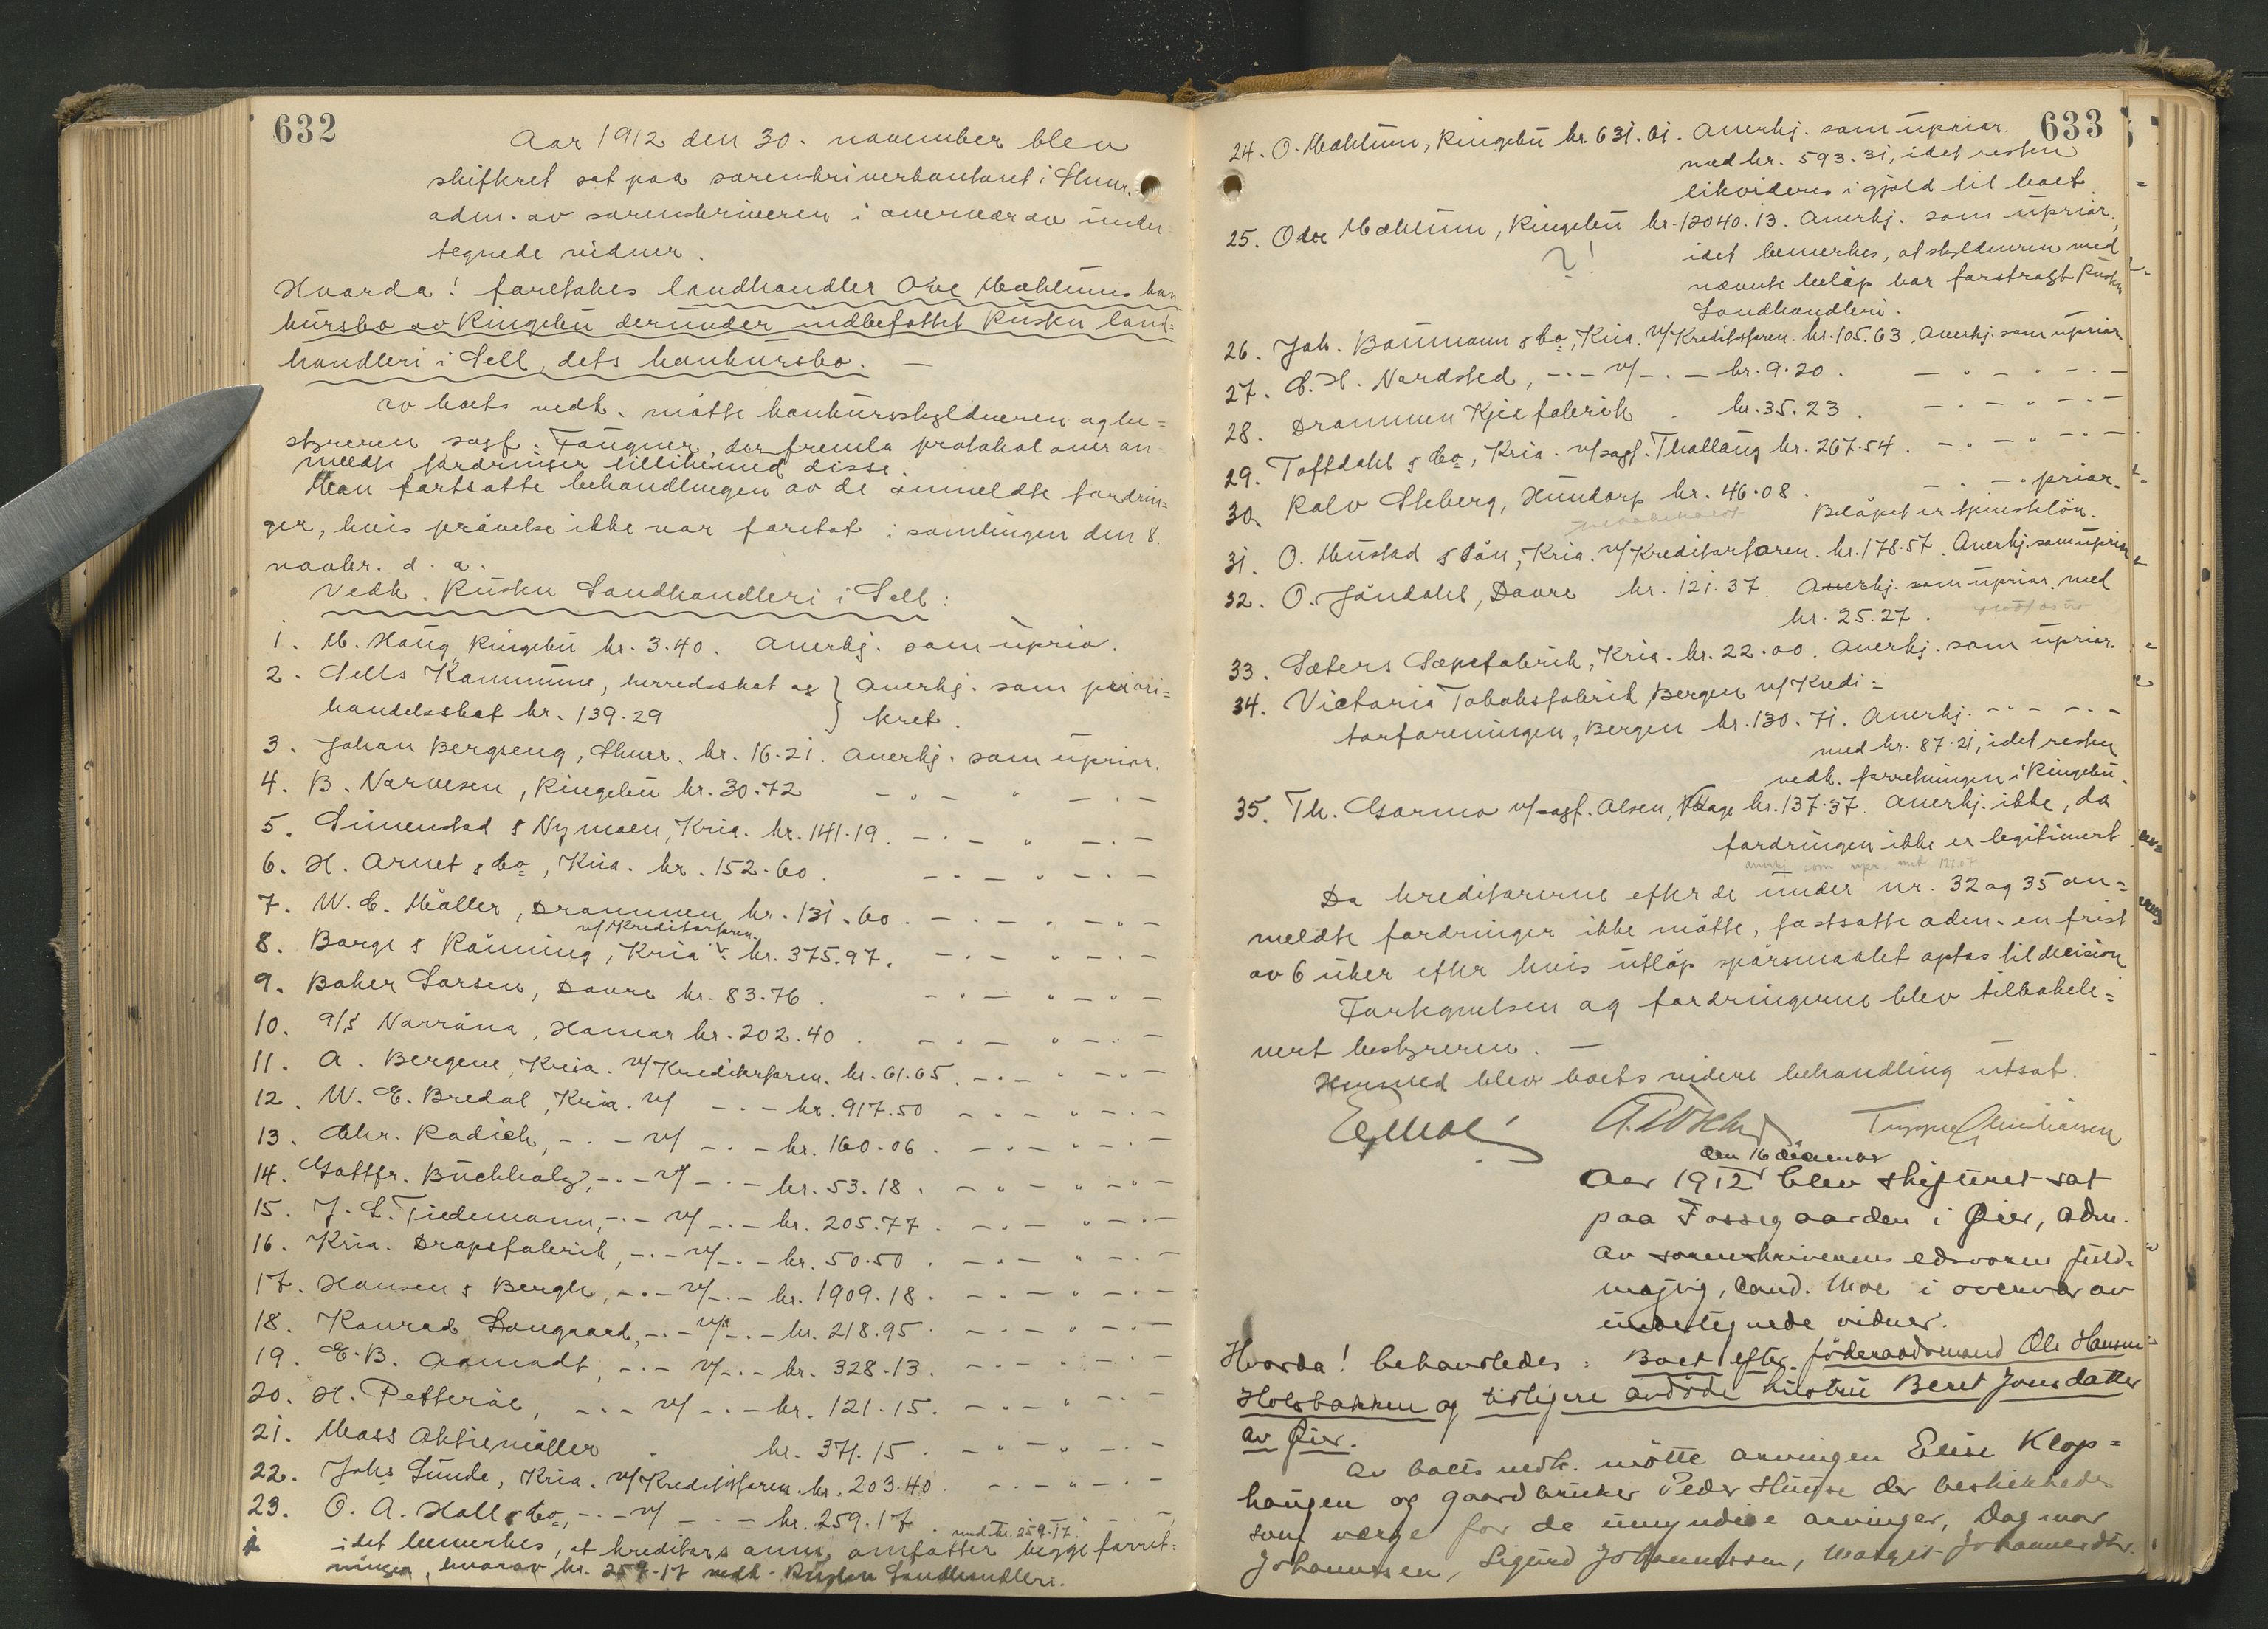 632
Aar 1912 den 30. november blev
skifteret sat paa sorenskriverkontoret i Lhmr.
adm. av sorenskriveren i overvær av under
tegnede vidner.
Hvorda! foretokes landhandler Ove Mæhlums kon
kursbo av Ringebu derunder indbefattet Rusten land=
handleri i Sell, dets konkursbo. —
Av boets vedk. møtte konkursskyldneren og be=
styreren sagf. Faugner, der fremla protokol over an
meldte fordringer tillikemed disse.
Man fortsatte behandlingen av de anmeldte fordrin=
ger, hvis prøvelse ikke var foretat i samlingen den 8.
novbr. d. a.
Vedk. Rusten Landhandleri i Sell:
1. M. Haug, Ringebu kr. 3.40. Anerkj. som uprior.
2. Sells Kommune, herredsskat og } Anerkj. som priori=
handelsskat kr. 139.29 } tert.
3. Johan Bergseng, Lhmr. kr. 16.21. Anerkj. som uprior.
4. B. Narvesen, Ringebu kr. 30.72 — " — " — " —
5. Simenstad & Nymoen, Kria. kr. 141.19. — " — " — " —
6. H. Arnet & Co, Kria. kr. 152.60. — " — " — " —
7. W. C. Møller, Drammen kr. 131.60. — " — " — " —
v/Kreditorforen.
8. Borge & Rønning, Kria kr. 375.97. — " — " — " —
9. Baker Larsen, Dovre kr. 83.76. — " — " — " —
10. A/S Norrøna, Hamar kr. 202.40. — " — " — " —
11. A. Bergene, Kria. v/Kreditorforen. kr. 61.65. — " — " — " —
12. W. E. Bredal, Kria. v/ — " — kr. 917.50 — " — " — " —
13. Chr. Radich, — " — v/ — " — kr. 160.06. — " — " — " —
14. Gottfr. Buchholz, — " — v/ — " — kr. 53.18. — " — " — " —
15. J. L. Tiedemann, — " — v/ — " — kr. 205.77. — " — " — " —
16. Kria. Dropsfabrik, — " — v/ — " — kr. 50.50. — " — " — " —
17. Hansen & Bergh, — " — v/ — " — kr. 1909.18. — " — " — " —
18. Konrad Langaard, — " — v/ — " — kr. 218.95. — " — " — " —
19. E. B. Aamodt, — " — v/ — " — kr. 328.13. — " — " — " —
20. H. Petterøe, — " — v/ — " — kr. 121.15. — " — " — " —
21. Moss Aktiemøller . kr. 371.15. — " — " — " —
22. Johs Sunde, Kria. v/Kreditorforen. kr. 203.40. — " — " — " —
23. O. A. Hall & Co, — " — v/ — " — kr. 259.17. med kr. 259.17.
idet bemerkes, at kreditors anm. omfatter begge forret=
ninger, hvorav kr. 259.17 vedk. Rusten Landhandleri.
633
24. O. Mæhlum, Ringebu kr. 631.61. Anerkj. som uprior.
med kr. 593.31, idet resten
likvideres i gjæld til boet.
25. Ove Mæhlum, Ringebu kr. 12040.13. Anerkj. som uprior,
?! idet bemerkes, at skyldneren med
nævnte beløp har forstrakt Rusten
Landhandleri.
26. Joh. Baumann & Co, Kria. v/Kreditorforen. kr. 105.63. Anerkj. som uprior
27. C. H. Nordsted, — " — v/ — " — kr. 9.20. — " — " — " —
28. Drammen Kjæxfabrik . kr. 35.23. — " — " — " —
29. Toftdahl & Co, Kria. v/sagf. Thallaug kr. 267.54. — " — " — " —
30. Rolv Skeberg, Hundorp kr. 46.08. — " — prior.
Beløpet er tjenesteløn.
31. O. Mustad & Søn, Kria. v/Kreditorforen. kr. 178.57. Anerkj. som uprior
32. O. Jøndahl, Dovre kr. 121.37. Anerkj. som uprior. med
kr. 25.27.
33. Sæters Sæpefabrik, Kria. kr. 22.00. Anerkj. som uprior.
34. Victoria Tobaksfabrik, Bergen v/Kredi=
torforeningen, Bergen kr. 130.71. Anerkj. — " — " —
med kr. 87.21, idet resten
vedk. forretningen i Ringebu.
35. Th. Garmo v/sagf. Olsen, Vaage kr. 137.37. Anerkj. ikke, da
fordringen ikke er legitimert.
Da kreditorerne efter de under nr. 32 og 35 an=
meldte fordringer ikke møtte, fastsatte adm. en frist
av 6 uker efter hvis utløp spørsmaalet optas til decision
Fortegnelsen og fordringerne blev tilbakele=
vert bestyreren. —
Hermed blev boets videre behandling utsat.
Trygve Christiansen
den 16 december
Aar 1912 blev skifteret sat
paa Fossegaarden i Øier, adm.
av sorenskriverens edsvorne fuld.
mægtig, cand. Moe i overvær av
undertegnede vidner.
Hvorda! behandledes: Boet efter føderaadsmand Ole Hansen
Holsbakken og tidligere avdøde hustru Beret Jonsdatter
av Øier.
Av boets vedk. møtte arvingen Elise Klop=
haugen og gaardbruker Peder Skugse der beskikkedes
som værge for de umyndige arvinger, Dagmar
Johannessen, Sigurd Johannessen, Margit Johannesdtr.